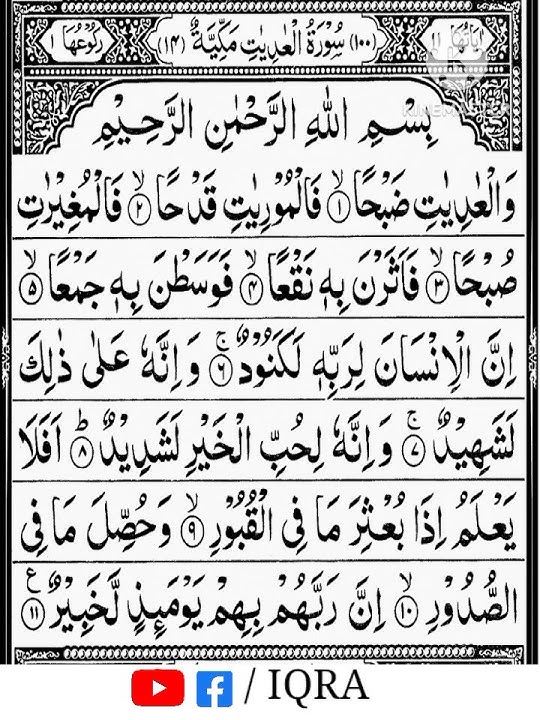 اٰیَاتُهَا ۱۱ (۱۰۰) سُوْرَةُ الْعٰدِیٰتِ مَكِّیَّةٌ (۱۴) رُكُوْعُهَا ۱
KINEMASTER
بِسْمِ اللّٰهِ الرَّحْمٰنِ الرَّحِیْمِ
وَالْعٰدِیٰتِ ضَبْحًا ۙ۱ فَالْمُوْرِیٰتِ قَدْحًا ۙ۲ فَالْمُغِیْرٰتِ
صُبْحًا ۙ۳ فَاَثَرْنَ بِهٖ نَقْعًا ۙ۴ فَوَسَطْنَ بِهٖ جَمْعًا ۙ۵
اِنَّ الْاِنْسَانَ لِرَبِّهٖ لَكَنُوْدٌ ۚ۶ وَاِنَّهٗ عَلٰی ذٰلِكَ
لَشَهِیْدٌ ۚ۷ وَاِنَّهٗ لِحُبِّ الْخَیْرِ لَشَدِیْدٌ ؕ۸ اَفَلَا
یَعْلَمُ اِذَا بُعْثِرَ مَا فِی الْقُبُوْرِ ۙ۹ وَحُصِّلَ مَا فِی
الصُّدُوْرِ ۙ۱۰ اِنَّ رَبَّهُمْ بِهِمْ یَوْمَىِٕذٍ لَّخَبِیْرٌ ۱۱ ع
/ IQRA